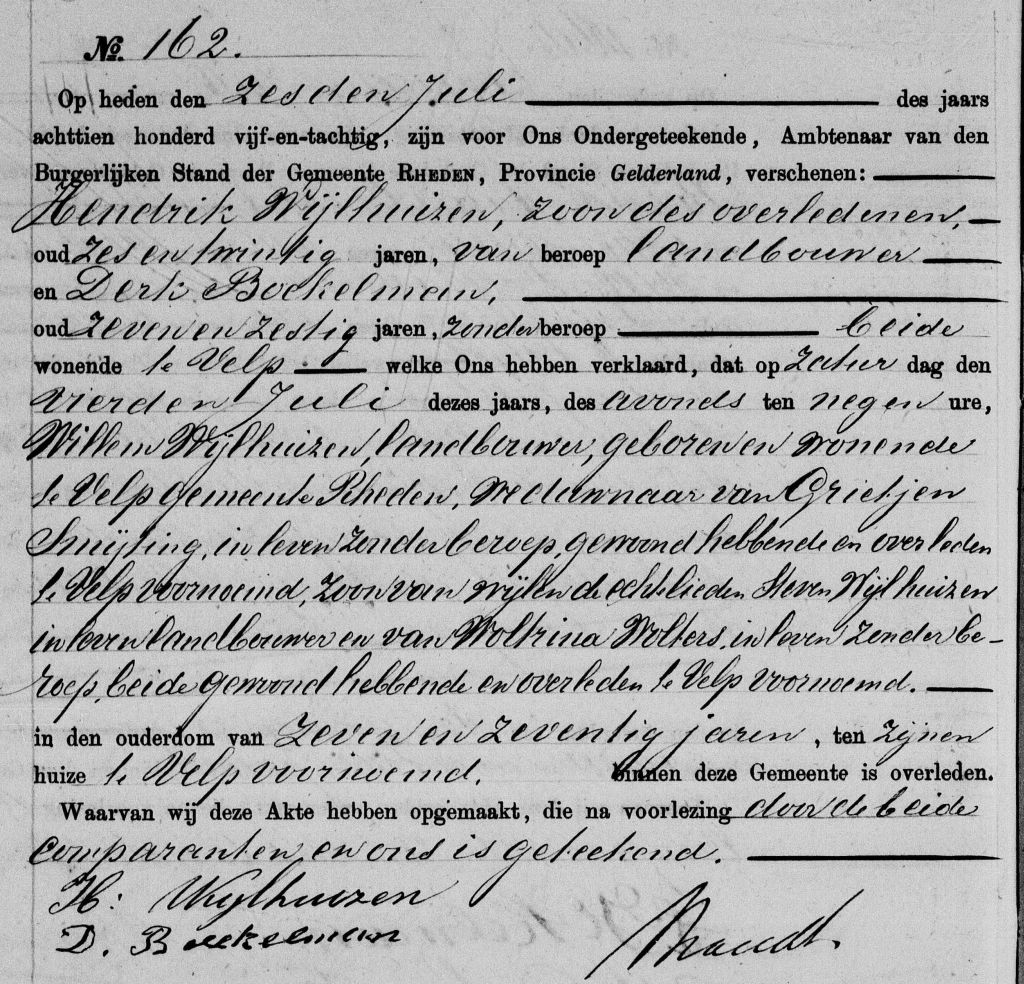 No. 162.
Op heden den zesden Juli des jaars
achttien honderd vijf-en-tachtig, zijn voor Ons Ondergeteekende, Ambtenaar van den
Burgerlijken Stand der Gemeente RHEDEN, Provincie Gelderland, verschenen:
Hendrik Wijlhuizen, zoon des overledenen,
oud zes en twintig jaren, van beroep landbouwer
en Derk Boekelman,
oud zeven en zestig jaren, zonder beroep beide
wonende te Velp welke Ons hebben verklaard, dat op Zatur dag den
vierden Juli dezes jaars, des avonds ten negen ure,
Willem Wijlhuizen, landbouwer, geboren en wonende
te Velp gemeente Rheden, weduwnaar van Grietjen
Smijting, in leven zonder beroep, gewoond hebbende en overleden
te Velp voornoemd, zoon van wijlen de echtelieden Steven Wijlhuizen
in leven landbouwer en van Woltrina Wolters, in leven zonder be-
roep, beide gewoond hebbende en overleden te Velp voornoemd.
in den ouderdom van zeven en zeventig jaren, ten zijnen
huize te Velp voornoemd. binnen deze Gemeente is overleden.
Waarvan wij deze Akte hebben opgemaakt, die na voorlezing door de beide
comparanten, en ons is geteekend.
H: Wijlhuizen
D. Boekelman
Brandt